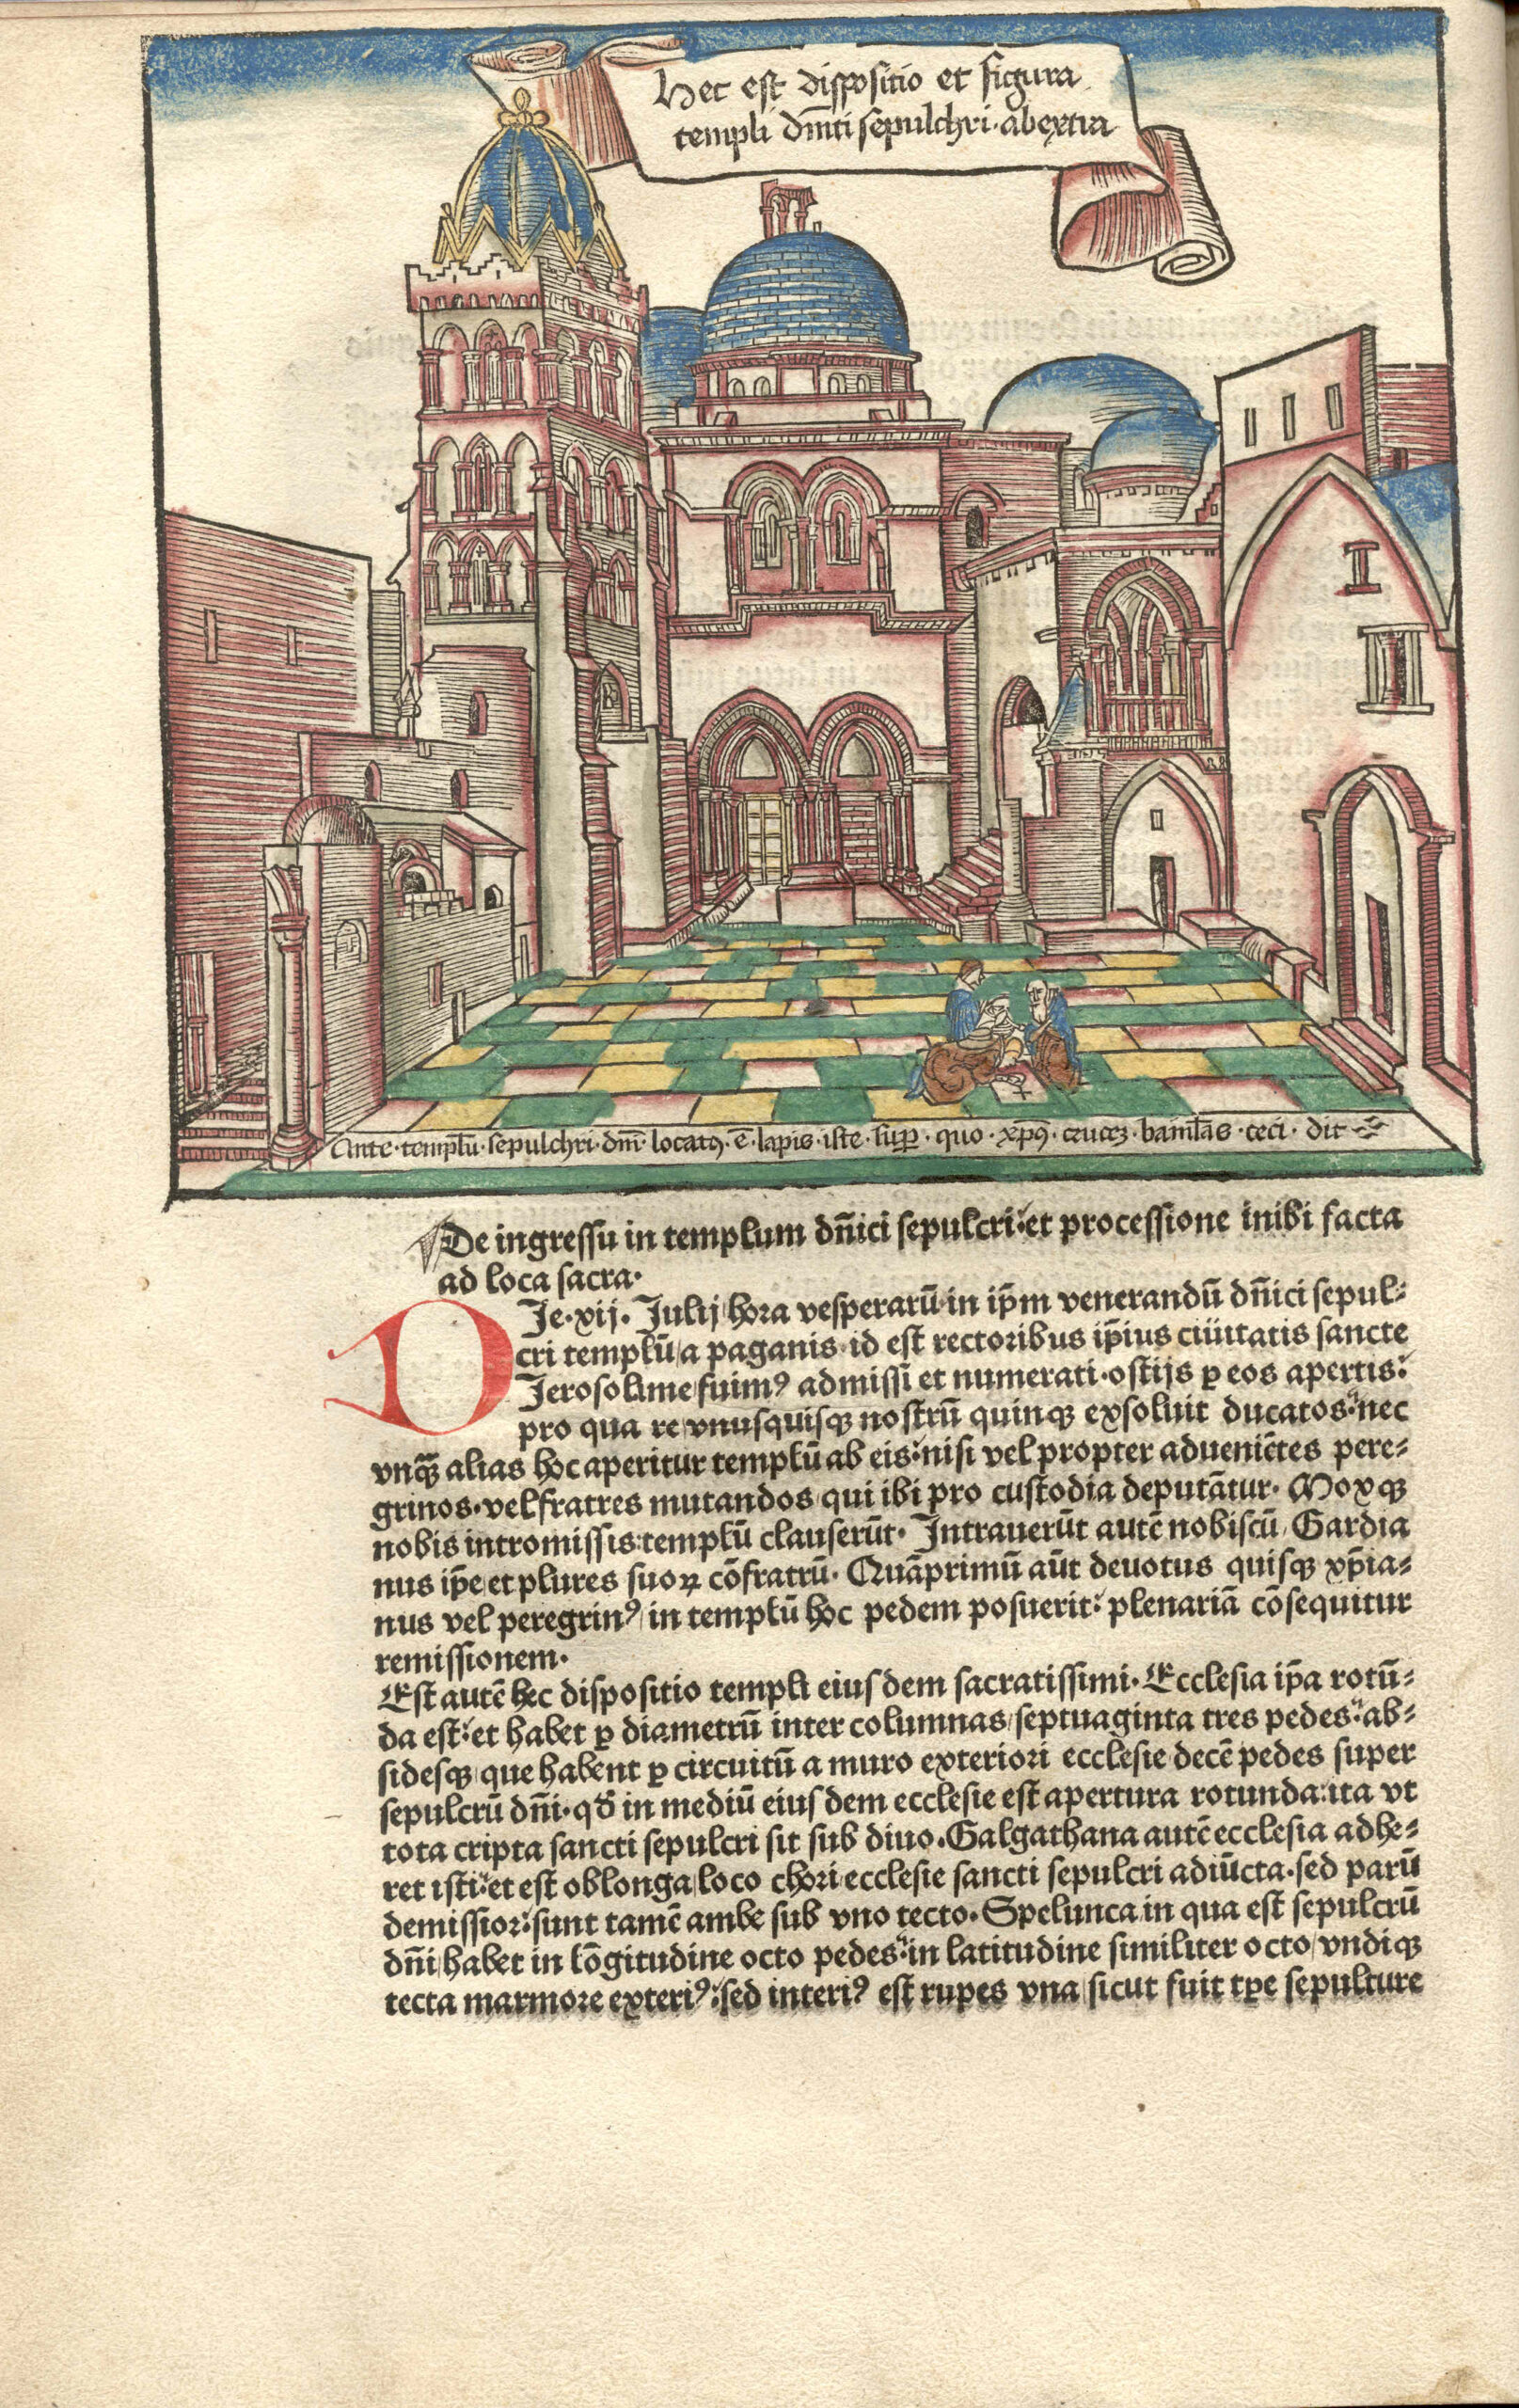 Hec est dispositio et figura
templi dn̄ici sepulchri·ab extra
Ante·templū·sepulchri·dn̄i·locatꝰ·ē·lapis·iste·suꝑ·quo·xp̄ꝰ·cruceꝫ·baiulās·ceci·dit
De ingressu in templum dn̄ici sepulcri: et processione inibi facta
ad loca sacra·
DJe·xij· Julij hora vesperarū in ip̄m venerandū dn̄ici sepul⸗
cri templū a paganis id est rectoribus ip̄ius ciuitatis sancte
Jerosolime fuimꝰ admissi et numerati·ostijs ꝑ eos apertis:
pro qua re vnusquisqꝫ nostrū quinqꝫ exsoluit ducatos: nec
vnqꝫ̄ alias hoc aperitur templū ab eis: nisi vel propter aduenie̅tes pere⸗
grinos·vel fratres mutandos qui ibi pro custodia deputātur· Moxqꝫ
nobis intromissis templū clauserūt· Intrauerūt autē nobiscū Gardia
nus ip̄e et plures suoꝝ cōfratrū· Quāprimū aūt deuotus quisqꝫ xp̄ia⸗
nus vel peregrinꝰ in templū hoc pedem posuerit: plenariā cōsequitur
remissionem·
Est autē hec dispositio templi eiusdem sacratissimi· Ecclesia ip̄a rotū⸗
da est: et habet ꝑ diametrū inter columnas septuaginta tres pedes: ab⸗
sidesqꝫ que habent ꝑ circuitū a muro exteriori ecclesie decē pedes super
sepulcrū dn̄i·qđ in mediū eiusdem ecclesie est apertura rotunda: ita vt
tota cripta sancti sepulcri sit sub diuo· Galgathana autē ecclesia adhe⸗
ret isti: et est oblonga loco chori ecclesie sancti sepulcri adiūcta·sed parū
demissior: sunt tamē ambe sub vno tecto· Spelunca in qua est sepulcrū
dn̄i habet in lōgitudine octo pedes: in latitudine similiter octo vndiqꝫ
tecta marmore exteriꝰ: sed interiꝰ est rupes vna sicut fuit tꝑe sepulture